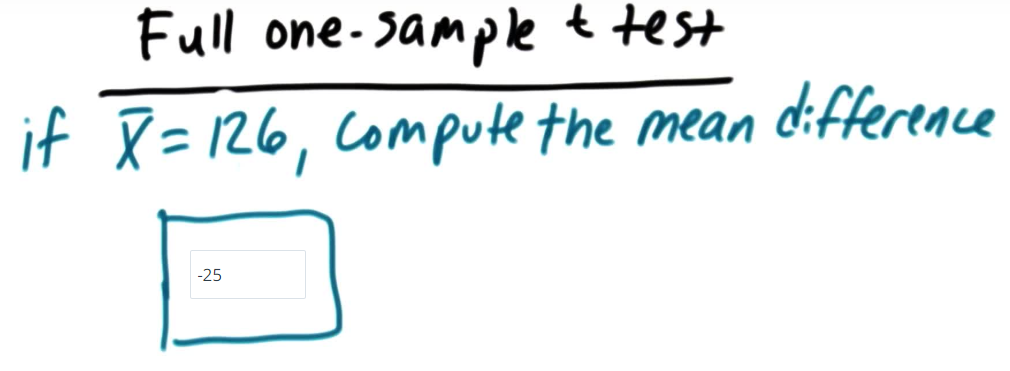 Full one-sample t test
if X̄ = 126, compute the mean difference
-25